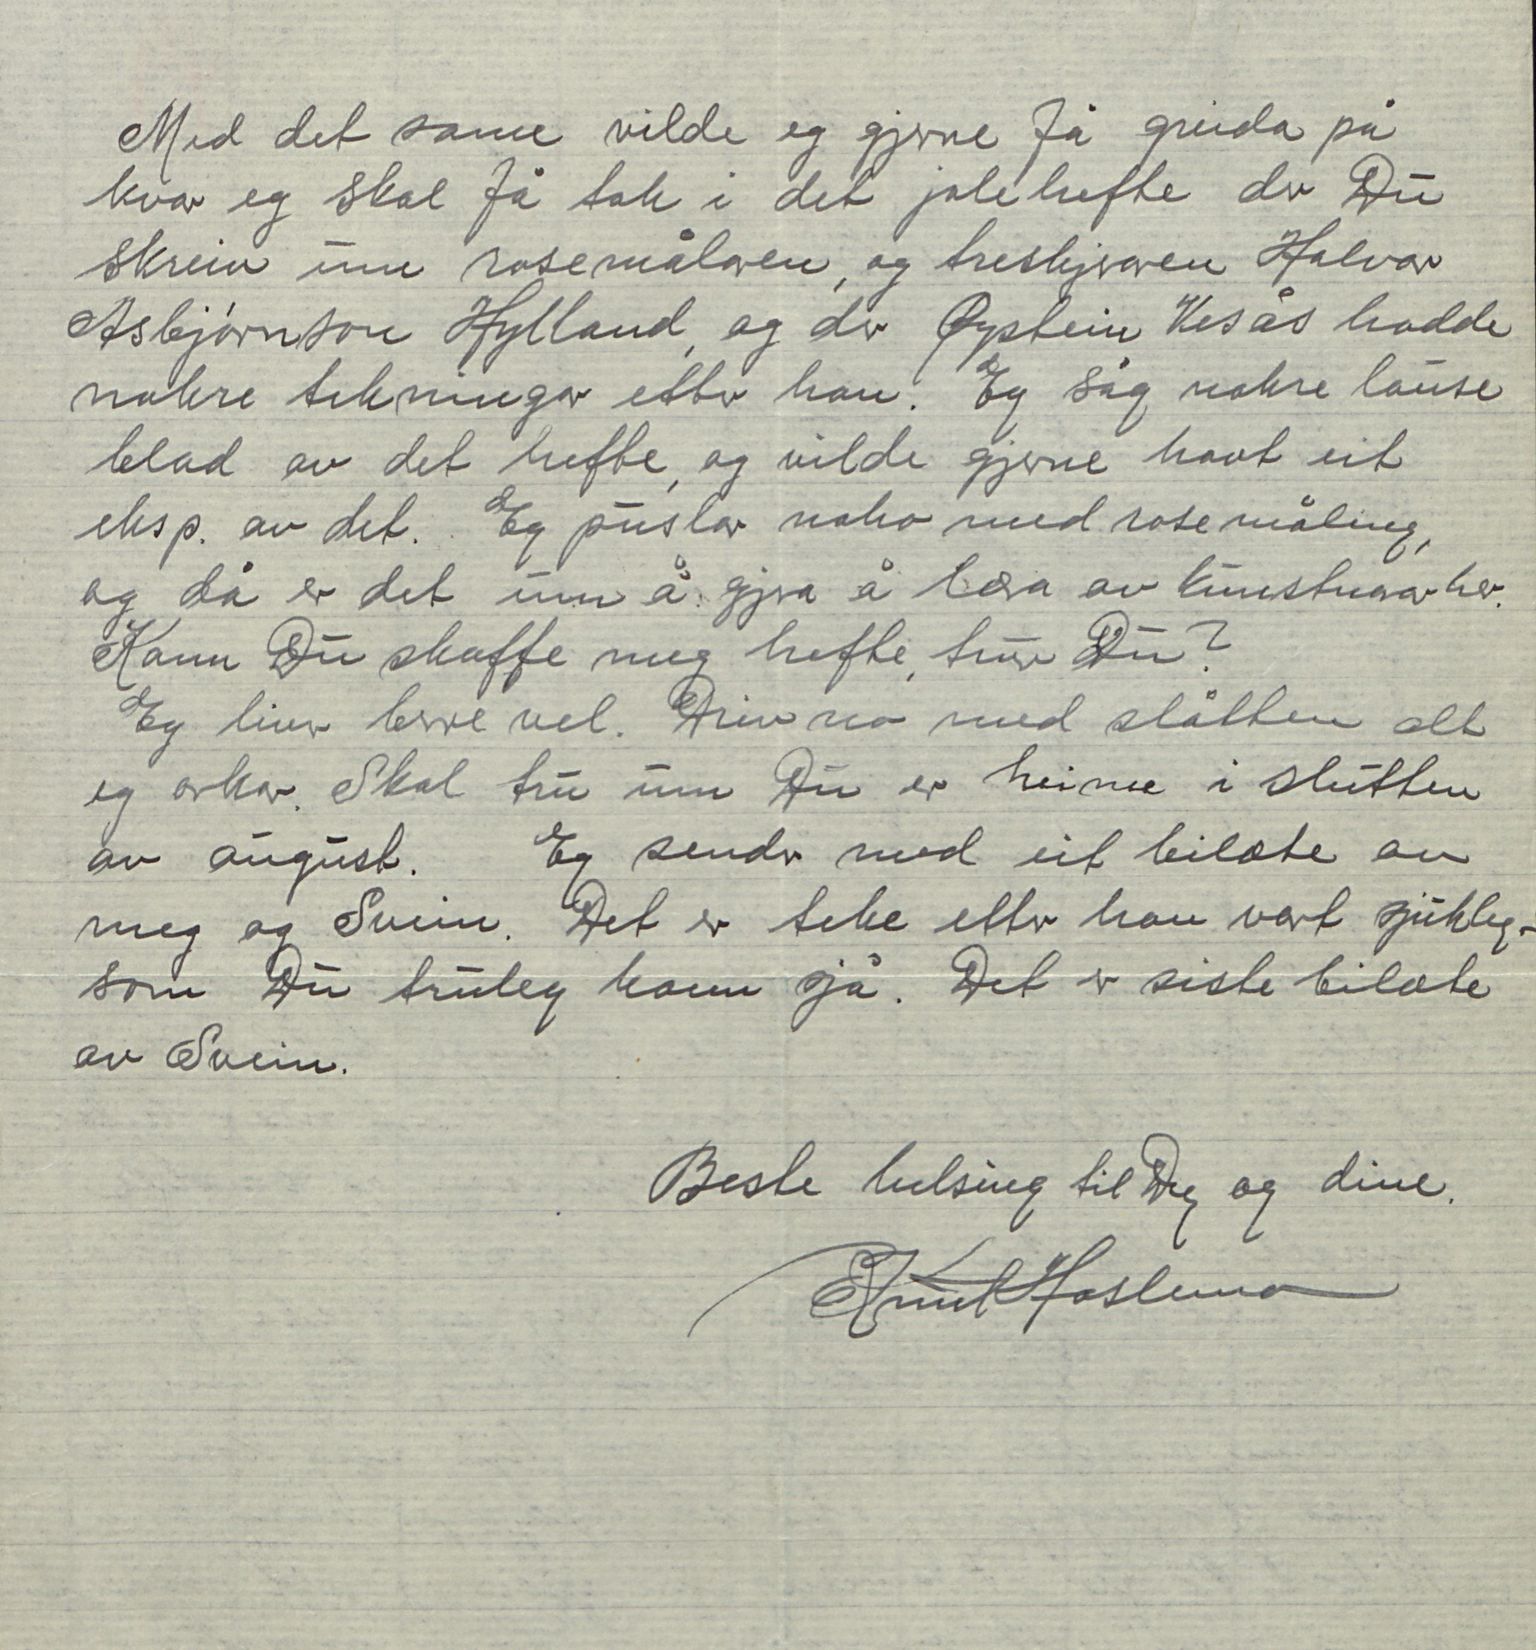 Med det same vilde eg gjerne få greida på
kvar eg skal få tak i det julehefte der Du
skreiv um rosemålaren, og treskjeraren Halvor
Asbjørnson Hylland, og der Øystein Vesås hadde
nokre tekningar etter han. Eg såg nokre lause
blad av det hefte, og vilde gjerne havt eit
eksp. av det. Eg puslar noko med rosemåling,
og då er det um å gjera å læra av kunstnarar her.
Kann Du skaffe meg hefte, trur Du?
Eg liver berre vel. Driv no med slåtten alt
eg orkar. Skal tru um Du er heime i slutten
av august. Eg sender med eit bilæte av
meg og Svein. Det er teke etter han vart sjukleg-
som Du truleg kann sjå. Det er siste bilæte
av Svein.
Beste helsing til Deg og dine.
Knut Hoslemo